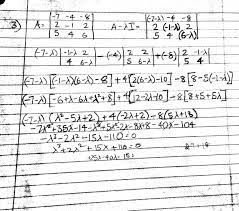 3) A = |-7 -4 -8| |2 -1 2| |5 4 6| A-λI = |(-7-λ) -4 -8| |2 (-1-λ) 2| |5 4 (6-λ)|
(-7-λ) |-1-λ 2| |4 6-λ| -(-4) |2 2| |5 6-λ| +(-8) |2 -1-λ| |5 4|
(-7-λ)[(-1-λ)(6-λ)-8] +4[2(6-λ)-10] -8[8-5(-1-λ)]
(-7-λ)[-6+λ-6λ+λ²+8] +4[12-2λ-10] -8[8+5+5λ]
(-7-λ)(λ²-5λ+2) +4(-2λ+2) -8(5λ+13)
-7λ²+35λ-14-λ³+5λ²-2λ-8λ+8-40λ-104
-λ³-2λ²-15λ-110=0
λ³+2λ²+15λ+110=0